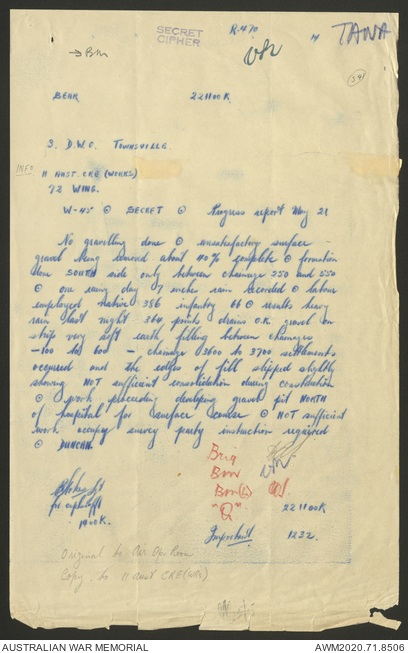 SECRET
CIPHER
R.470
TANA
→ BM
391
BEAR 221100K.
3. D.W.O. TOWNSVILLE.
INFO 11 AUST. CRE (WORKS)
72 WING.
W-45 ⊙ SECRET ⊙ Progress report May 21
No gravelling done ⊙ unsatisfactory surface -
gravel being removed about 40% complete ⊙ formation
done SOUTH side only between chainage 250 and 550
⊙ one rainy day 7 inches rain recorded ⊙ labour
employed native 386 infantry 66 ⊙ results heavy
rain last night 364 points drains O.K. gravel on
strip very soft earth filling between chainages
-100 to 600 - chainage 3600 to 3700 settlements
occurred and the edges of fill slipped slightly
showing NOT sufficient consolidation during construction
⊙ work proceeding developing gravel pit NORTH
of hospital for surface course ⊙ NOT sufficient
work occupy survey party instruction required
⊙ DUNCAN.
Brig
BM
"Q"
for cipher offr
1400K.
221100K
Important 1232.
Original to Air Op Room
Copy to 11 Aust CRE (Wks)
AUSTRALIAN WAR MEMORIAL
AWM2020.71.8506